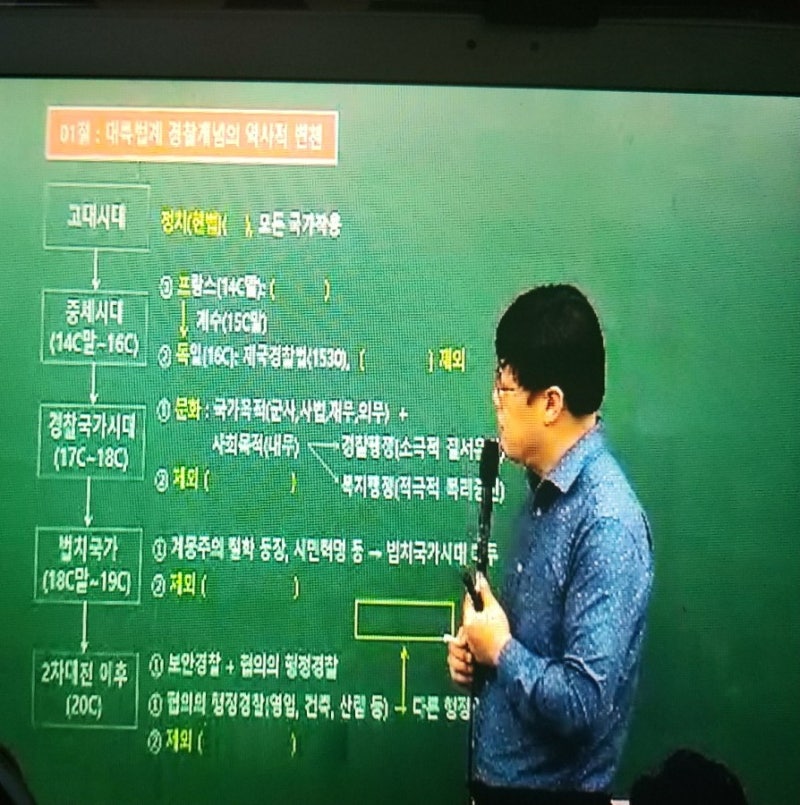 01절 : 대륙법계 경찰개념의 역사적 변천
고대시대
정치(헌법)( ), 모든 국가작용
중세시대
(14C말~16C)
① 프랑스(14C말): ( )
계수(15C말)
② 독일(16C): 제국경찰법(1530), ( ) 제외
경찰국가시대
(17C~18C)
① 문화 : 국가목적(군사,사법,재무,외무) +
사회목적(내무)
경찰행정(소극적 질서
복지행정(적극적 복리
② 제외 ( )
법치국가
(18C말~19C)
① 계몽주의 철학 등장, 시민혁명 등 → 법치국가시대
② 제외 ( )
2차대전 이후
(20C)
① 보안경찰 + 협의의 행정경찰
① 협의의 행정경찰(영업, 건축, 산림 등) → 다른 행정
② 제외 ( )